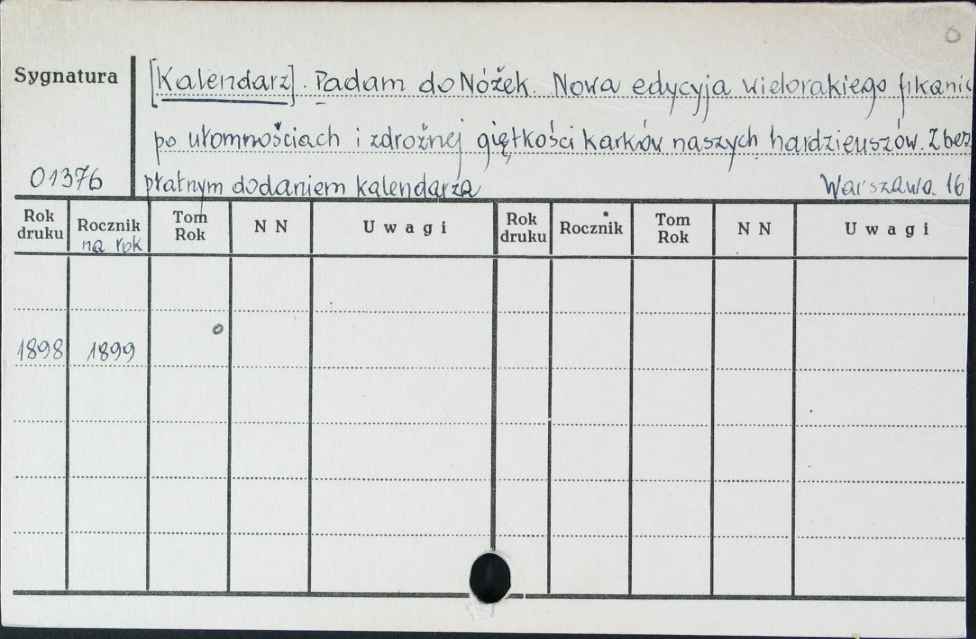 Sygnatura
[Kalendarz]. Padam do Nóżek. Nowa edycyja wielorakiego
po ułomnościach i zdrożnej giętkości karków naszych hardzieuszów. Z bez
01376 płatnym dodaniem kalendarza Warszawa 16
Rok druku Rocznik na rok Tom Rok N N Uwagi Rok druku Rocznik Tom Rok N N Uwagi
1898 1899